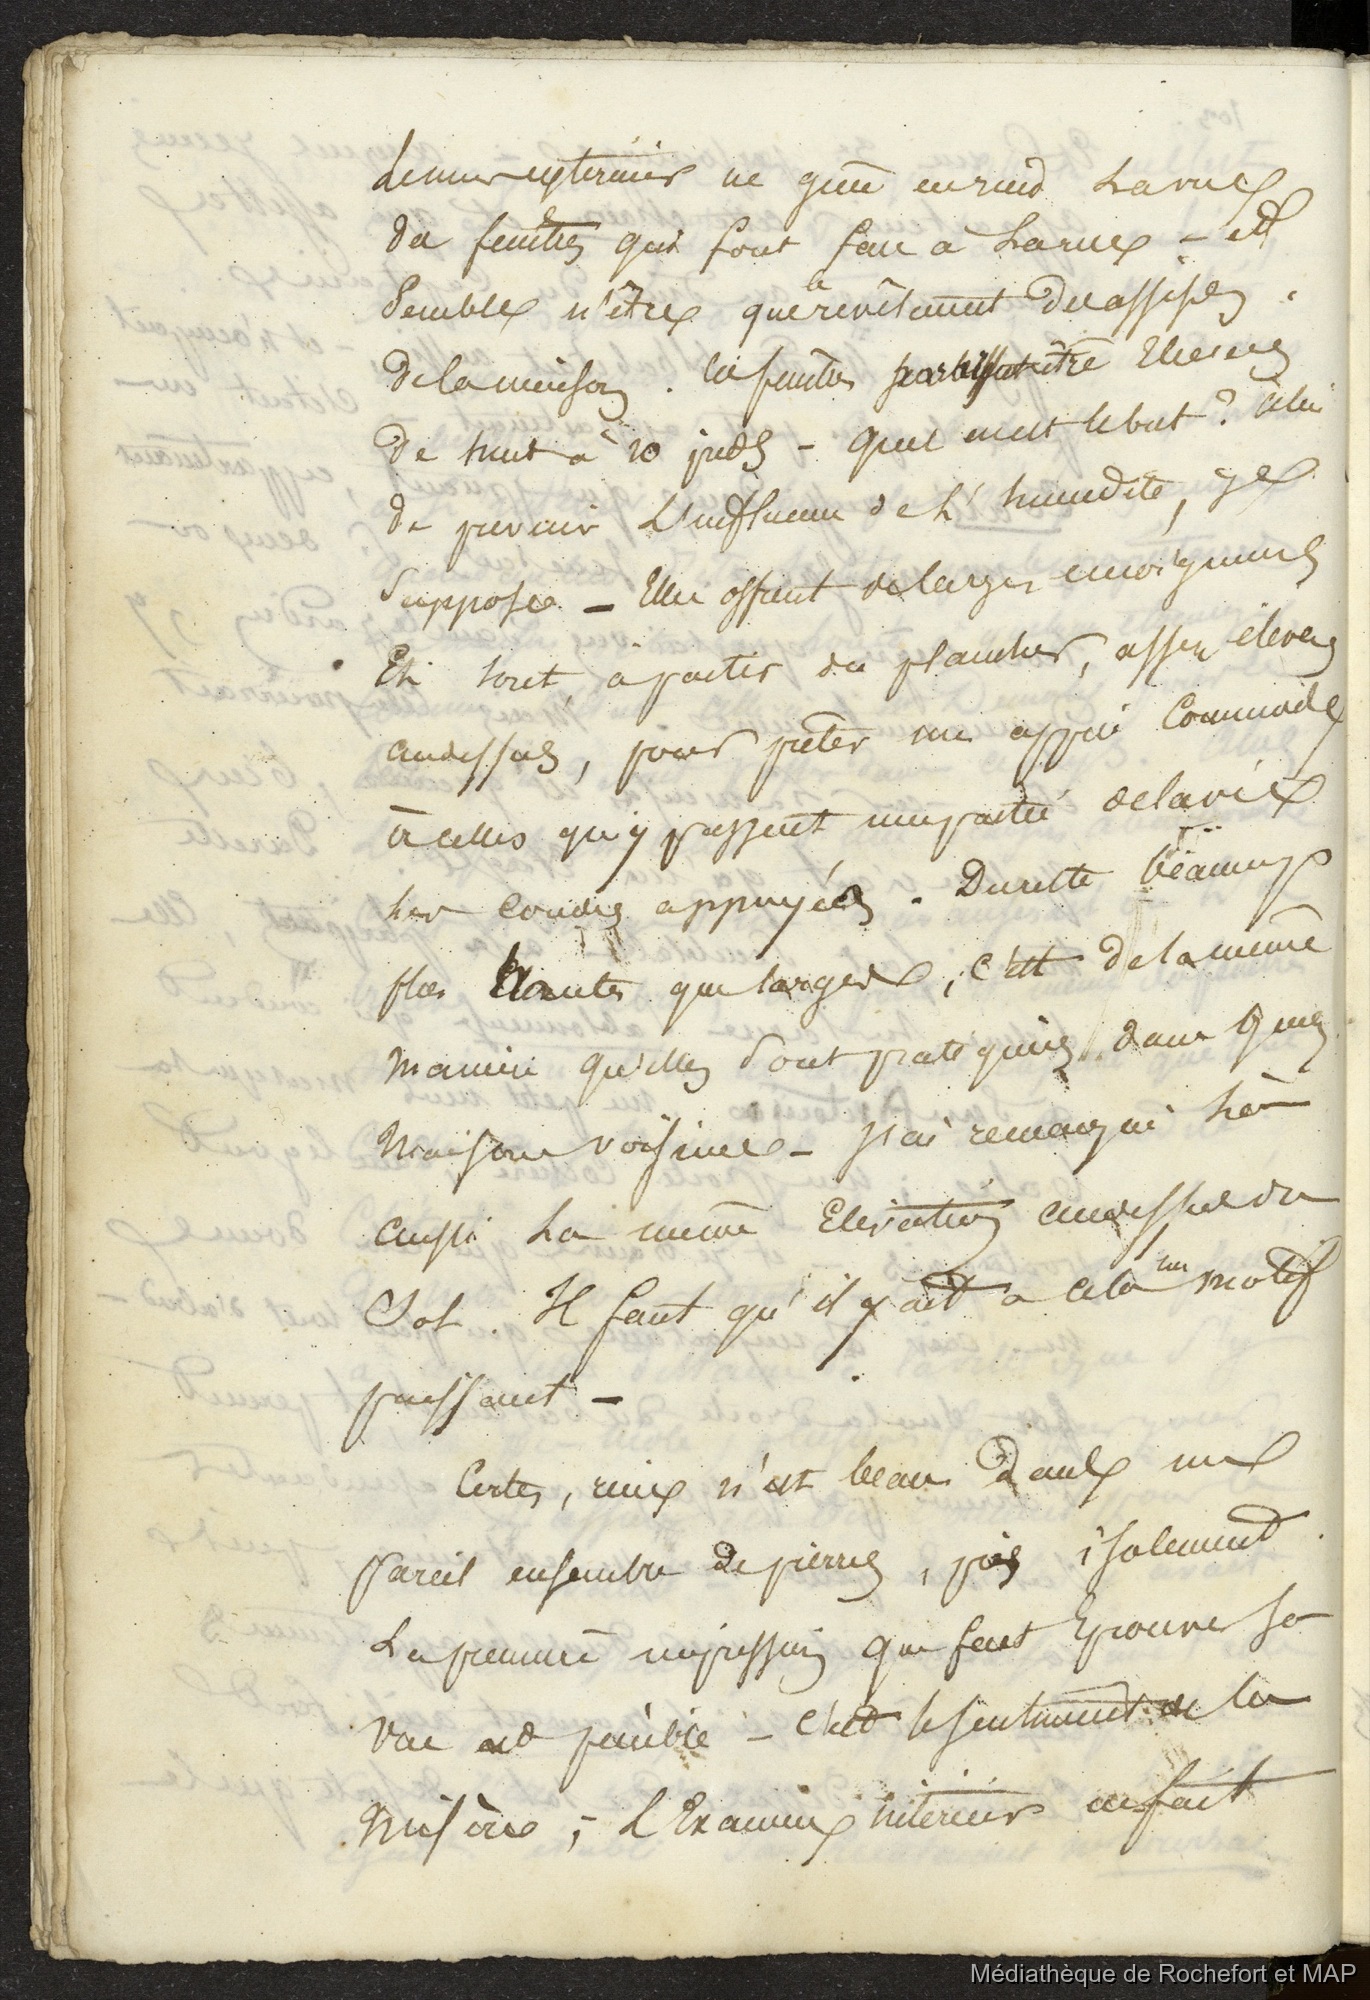 Le mur extérieur ne gêne en rien la vue
des fenêtres qui font face à la rue - et
semble n'être que revêtement des assises
de la maison. les fenêtres paraissent être élevées
de huit à 10 pieds - quel en est le but? celui
de prévenir l'influence de l'humidité, je
suppose - Elles offrent de larges encoignures
Et sont, à partir du plancher, assez élevées
audessus, pour prêter un appui commode
à celles qui y passent une partie de la vie
les coudes appuyées. Du reste beaucoup
plus hautes que larges, c'est de la même
manière qu'elles sont pratiquées dans les
maisons voisines - j'ai remarqué là
aussi la même Elévation audessus du
Sol. Il faut qu'il y ait à cela un motif
puissant -
Certes, rien n'est beau dans un
pareil ensemble de pierres, pris isolement
La première impression que fait éprouver sa
vue est pénible - c'est le sentiment de la
misère; - L'Examen intérieur en fait
Médiathèque de Rochefort et MAP